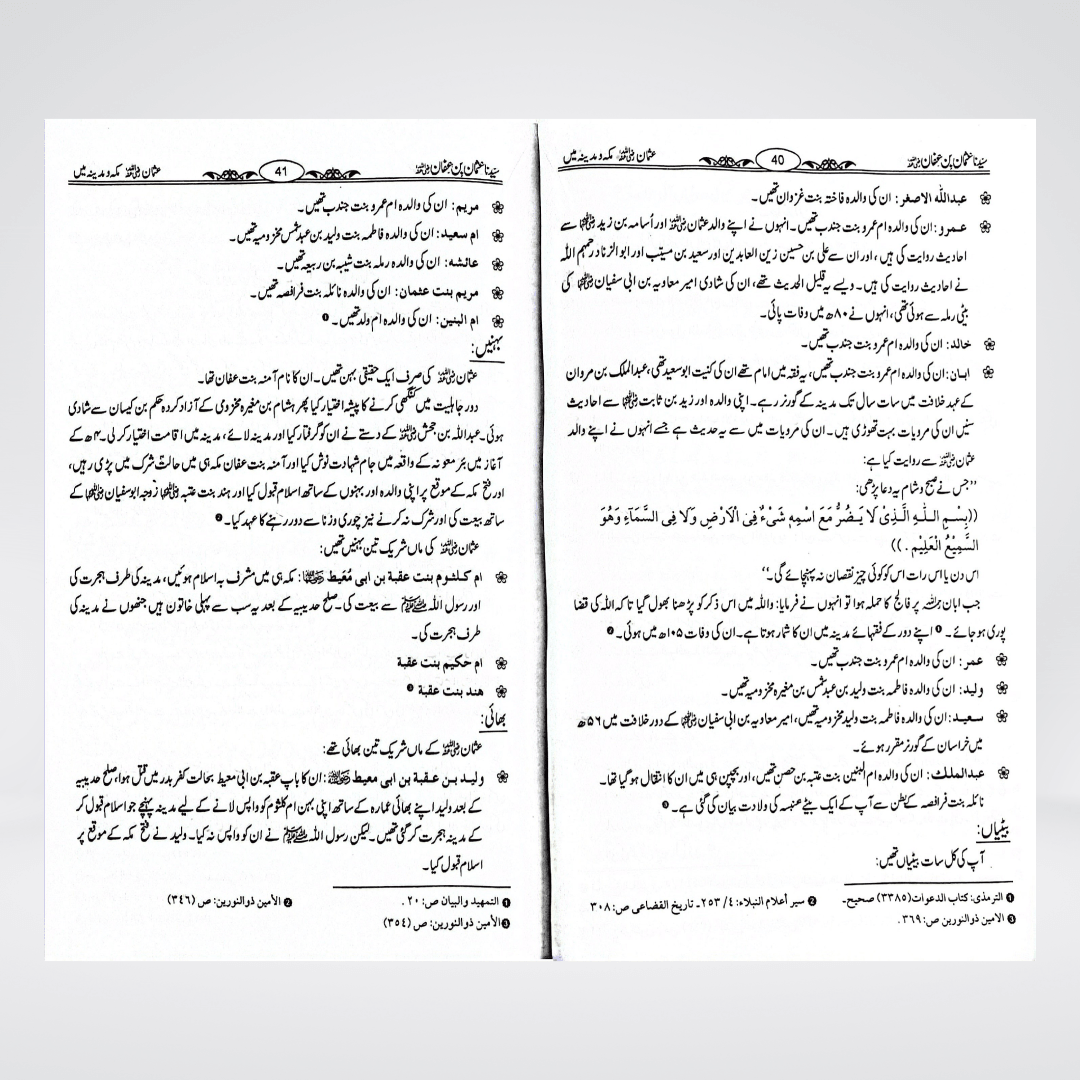 سیّدنا عثمان بن عفان رضی اللہ عنہ 40 عثمان رضی اللہ عنہ مکہ و مدینہ میں
عبداللہ الاصغر: ان کی والدہ فاختہ بنت غزوان تھیں۔
عمرو: ان کی والدہ ام عمرو بنت جندب تھیں۔ انہوں نے اپنے والد عثمان رضی اللہ عنہ اور اُسامہ بن زید رضی اللہ عنہما سے
احادیث روایت کی ہیں، اور ان سے علی بن حسین زین العابدین اور سعید بن مسیتب اور ابو الزناد رحمہم اللہ
نے احادیث روایت کی ہیں۔ ویسے یہ قلیل الحدیث تھے، ان کی شادی امیر معاویہ بن ابی سفیان رضی اللہ عنہما کی
بیٹی رملہ سے ہوئی تھی، انہوں نے ۸۰ھ میں وفات پائی۔
خالد: ان کی والدہ ام عمرو بنت جندب تھیں۔
ابان: ان کی والدہ ام عمرو بنت جندب تھیں، یہ فقہ میں امام تھے ان کی کنیت ابوسعید تھی، عبدالملک بن مروان
کے عہد خلافت میں سات سال تک مدینہ کے گورنر رہے۔ اپنی والدہ اور زید بن ثابت رضی اللہ عنہما سے احادیث
سنیں ان کی مرویات بہت تھوڑی ہیں۔ ان کی مرویات میں سے یہ حدیث ہے جسے انہوں نے اپنے والد
عثمان رضی اللہ عنہ سے روایت کیا ہے:
”جس نے صبح و شام یہ دعا پڑھی:
((بِسْمِ اللّٰهِ الَّذِیْ لَا یَضُرُّ مَعَ اسْمِهٖ شَیْءٌ فِی الْاَرْضِ وَلَا فِی السَّمَآءِ وَهُوَ
السَّمِیْعُ الْعَلِیْمِ . ))
اس دن یا اس رات اس کو کوئی چیز نقصان نہ پہنچائے گی۔“
جب ابان رحمہ اللہ پر فالج کا حملہ ہوا تو انہوں نے فرمایا: واللہ میں اس ذکر کو پڑھنا بھول گیا تاکہ اللہ کی قضا
پوری ہو جائے۔❶ اپنے دور کے فقہائے مدینہ میں ان کا شمار ہوتا ہے۔ ان کی وفات ۱۰۵ھ میں ہوئی۔❷
عمر: ان کی والدہ ام عمرو بنت جندب تھیں۔
ولید: ان کی والدہ فاطمہ بنت ولید بن عبدشمس بن مغیرہ مخزومیہ تھیں۔
سعید: ان کی والدہ فاطمہ بنت ولید مخزومیہ تھیں، امیر معاویہ بن ابی سفیان رضی اللہ عنہما کے دور خلافت میں ۵۶ھ
میں خراسان کے گورنر مقرر ہوئے۔
عبدالملک: ان کی والدہ ام البنین بنت عتبہ بن حصن تھیں، اور بچپن ہی میں ان کا انتقال ہو گیا تھا۔
نائلہ بنت فرافصہ کے بطن سے آپ کے ایک بیٹے عنبسہ کی ولادت بیان کی گئی ہے۔❸
بیٹیاں:
آپ کی کل سات بیٹیاں تھیں:
❶ الترمذی: کتاب الدعوات(۳۳۸۵) صحیح۔ ❷ سیر أعلام النبلاء: ۴/ ۲۵۳۔ تاریخ القضاعی ص: ۳۰۸
❸ الامین ذوالنورین ص: ۳۶۹ .
سیّدنا عثمان بن عفان رضی اللہ عنہ 41 عثمان رضی اللہ عنہ مکہ و مدینہ میں
مریم: ان کی والدہ ام عمرو بنت جندب تھیں۔
ام سعید: ان کی والدہ فاطمہ بنت ولید بن عبدشمس مخزومیہ تھیں۔
عائشہ: ان کی والدہ رملہ بنت شیبہ بن ربیعہ تھیں۔
مریم بنت عثمان: ان کی والدہ نائلہ بنت فرافصہ تھیں۔
ام البنین: ان کی والدہ ام ولد تھیں۔❶
بہنیں:
عثمان رضی اللہ عنہ کی صرف ایک حقیقی بہن تھیں۔ ان کا نام آمنہ بنت عفان تھا۔
دور جاہلیت میں کنگھی کرنے کا پیشہ اختیار کیا پھر ہشام بن مغیرہ مخزومی کے آزاد کردہ حکم بن کیسان سے شادی
ہوئی۔ عبداللہ بن جحش رضی اللہ عنہ کے دستے نے ان کو گرفتار کیا اور مدینہ لائے، مدینہ میں اقامت اختیار کر لی۔ ۴ھ کے
آغاز میں بئر معونہ کے واقعہ میں جام شہادت نوش کیا اور آمنہ بنت عفان مکہ ہی میں حالت شرک میں پڑی رہیں،
اور فتح مکہ کے موقع پر اپنی والدہ اور بہنوں کے ساتھ اسلام قبول کیا اور ہند بنت عتبہ رضی اللہ عنہا زوجہ ابوسفیان رضی اللہ عنہما کے
ساتھ بیعت کی اور شرک نہ کرنے نیز چوری و زنا سے دور رہنے کا عہد کیا۔❷
عثمان رضی اللہ عنہ کی ماں شریک تین بہنیں تھیں:
ام کلثوم بنت عقبة بن ابی مُعَیط رضی اللہ عنہا: مکہ ہی میں مشرف بہ اسلام ہوئیں، مدینہ کی طرف ہجرت کی
اور رسول اللہ ﷺ سے بیعت کی۔ صلح حدیبیہ کے بعد یہ سب سے پہلی خاتون ہیں جنھوں نے مدینہ کی
طرف ہجرت کی۔
ام حکیم بنت عقبة
هند بنت عقبة❸
بھائی:
عثمان رضی اللہ عنہ کے ماں شریک تین بھائی تھے:
ولید بن عقبة بن ابی معیط رضی اللہ عنہ: ان کا باپ عقبہ بن ابی معیط بحالت کفر بدر میں قتل ہوا، صلح حدیبیہ
کے بعد ولید اپنے بھائی عمارہ کے ساتھ اپنی بہن ام کلثوم کو واپس لانے کے لیے مدینہ پہنچے جو اسلام قبول کر
کے مدینہ ہجرت کر گئی تھیں۔ لیکن رسول اللہ ﷺ نے ان کو واپس نہ کیا۔ ولید نے فتح مکہ کے موقع پر
اسلام قبول کیا۔
❶ التمهید والبیان ص: ۲۰ . ❷ الأمین ذوالنورین: ص (۳۴۶)
❸ الأمین ذوالنورین: ص (۳۵۴)